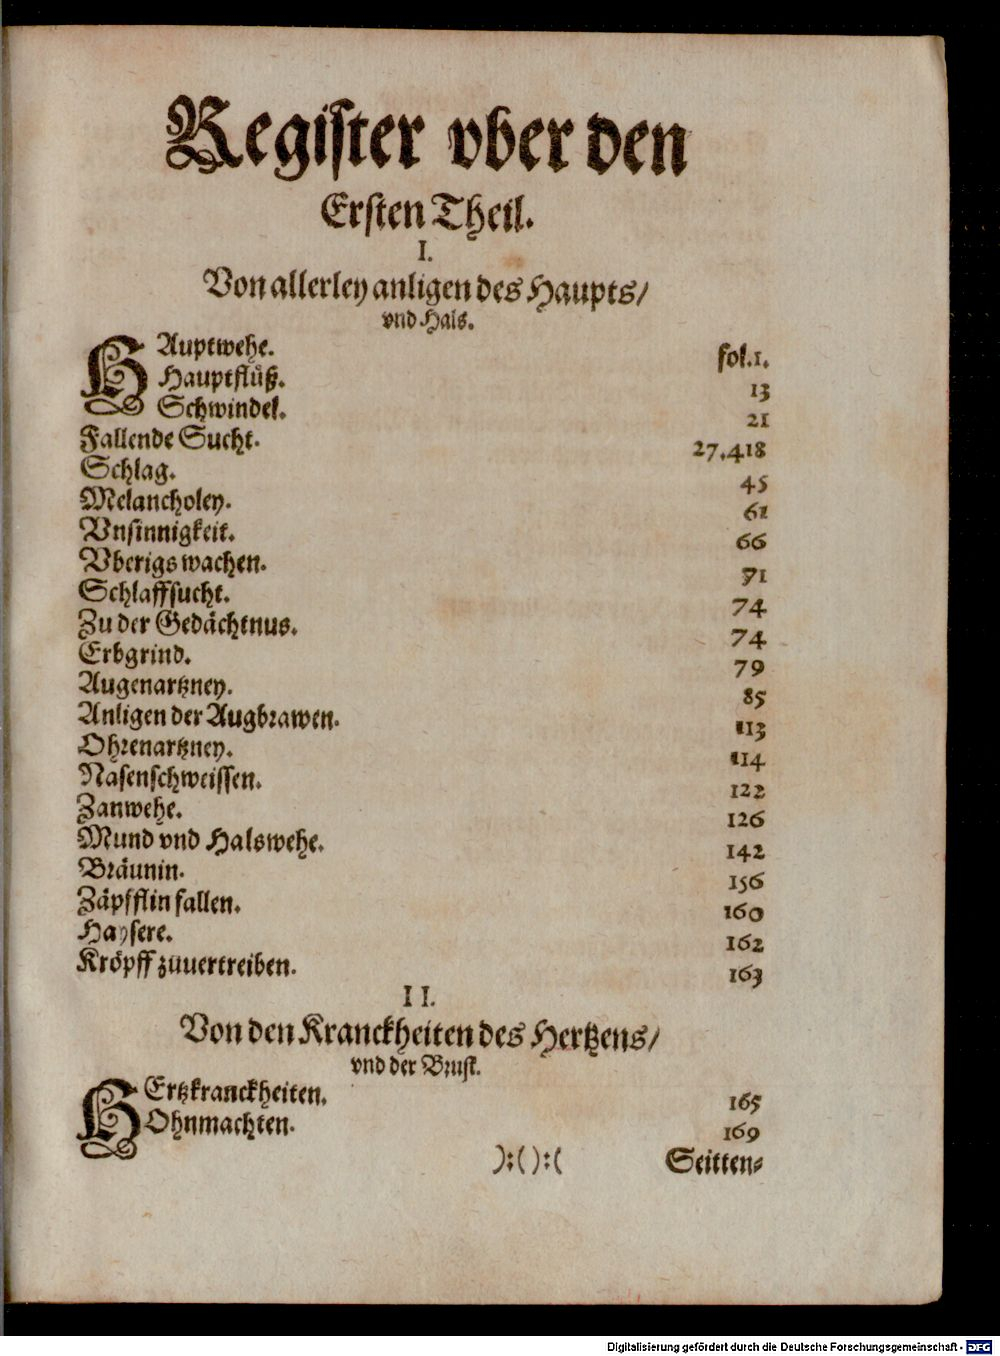 Register vber den
Ersten Theil.
I.
Von allerley anligen des Haupts/
vnd Hals.
HAuptwehe. fol.1.
Hauptflüß. 13
Schwindel. 21
Fallende Sucht. 27.418
Schlag. 45
Melancholey. 61
Vnsinnigkeit. 66
Vberigs wachen. 71
Schlaffsucht. 74
Zu der Gedächtnus. 74
Erbgrind. 79
Augenartzney. 85
Anligen der Augbrawen. 113
Ohrenartzney. 114
Nasenschweissen. 122
Zanwehe. 126
Mund vnd Halswehe. 142
Bräunin. 156
Zäpfflin fallen. 160
Haysere. 162
Kröpff zuuertreiben. 163
II.
Von den Kranckheiten des Hertzens/
vnd der Brust.
HErtzkranckheiten. 165
Ohnmachten. 169
):( ):( Seitten-
Digitalisierung gefördert durch die Deutsche Forschungsgemeinschaft - DFG